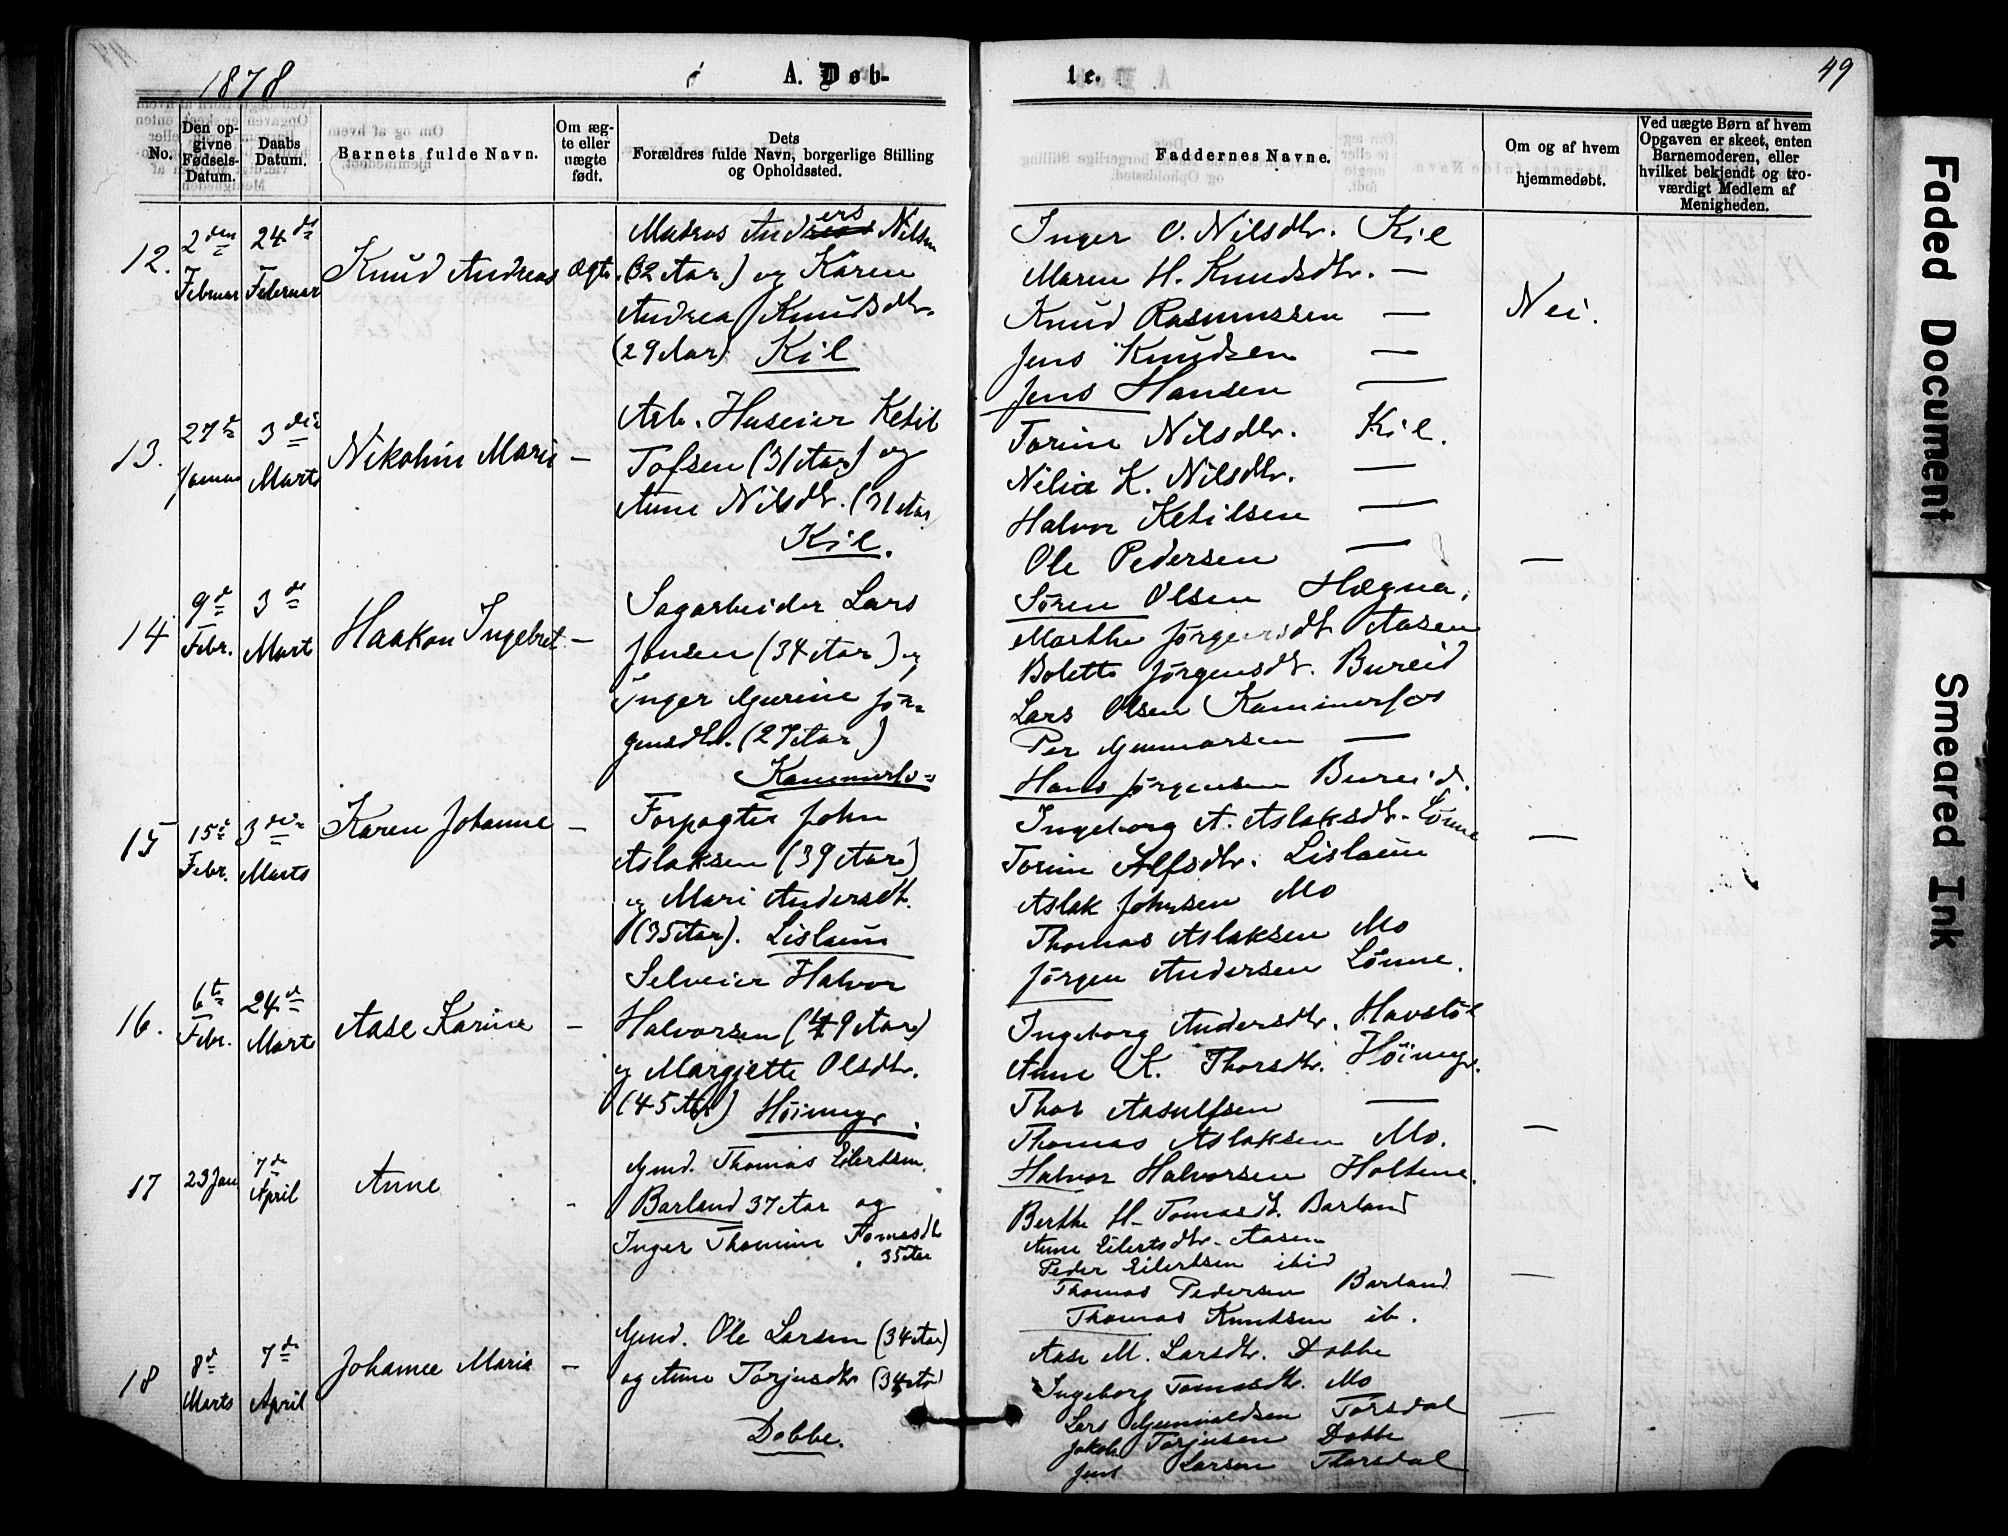 1878
A. Døb-
te.
49
No.
Den op-
givne
Fødsels-
Datum.
Daabs
Datum.
Barnets fulde Navn.
Om æg-
te eller
uægte
født.
Dets
Forældres fulde Navn, borgerlige Stilling
og Opholdssted.
Faddernes Navne.
Om og af hvem
hjemmedøbt.
Ved uægte Børn af hvem
Opgaven er skeet, enten
Barnemoderen, eller
hvilket bekjendt og tro-
værdigt Medlem af
Menigheden.
12.
2den
Februar
24de
Februar
Knud Andreas
Ægte.
Matros Anders Nilsen
(32 Aar) og Karen
Andrea Knudsdtr.
(29 Aar) Kil
Inger O. Nilsdtr. Kil
Maren H. Knudsdtr. —
Knud Rasmussen —
Jens Knudsen —
Jens Hansen —
Nei.
13.
27de
Januar
3die
Marts
Nikoline Marie
—
Arb. Huseier Ketil
Tofsen (31 Aar) og
Anne Nilsdtr. (31 Aar
Kil.
Torine Nilsdtr. Kil.
Nilia K. Nilsdtr. —
Halvor Ketilsen —
Ole Pedersen —
Søren Olsen Hægna.
—
14
9de
Febr.
3die
Mart
Haakon Ingebret
—
Sagarbeider Lars
Jensen (34 Aar) og
Inger Gurine Jør-
gensdtr. (27 Aar)
Kammerfos
Marthe Jørgensdt. Aasen
Bolette Jørgensdtr. Bureid
Lars Olsen Kammerfos
Per Gunnarsen —
Hans Jørgensen Bureid.
15
15de
Febr.
3die
Marts
Karen Johanne
—
Forpagter John
Aslaksen (39 Aar)
og Mari Andersdt.
(35 Aar). Lislaun
Ingeborg A. Aslaksdtr. Lønne
Torine Alfsdtr. Lislaun
Aslak Johnsen Mo
Thomas Aslaksen Mo
Jørgen Andersen Lønne.
—
16.
6te
Febr.
24de
Mart
Aase Karine
—
Selveier Halvor
Halvorsen (49 Aar)
og Margjette Olsdtr.
(45 Aar) Høimyr.
Ingeborg Andersdtr. Havstøl
Anne K. Thorsdtr. Høimyr.
Thor Aasulfsen —
Thomas Aslaksen Mo.
Halvor Halvorsen Holtene.
—
17
23 Jan
7de
April
Anne
-
Gmd. Thomas Eilertsen
Barland 37 Aar og
Inger Thomine Tomasdt
35 Aar
Berthe H. Tomasdt. Barland
Anne Eilertsdtr. Aasen
Peder Eilertsen ibid
Thomas Pedersen Barland
Thomas Knutsen ib.
—
18
8de
Marts
7de
April
Johanne Maria
—
Gmd. Ole Larsen (34 Aar)
og Anne Torjusdtr (34 Aar)
Dobbe.
Aase M. Larsdtr. Dobbe
Ingeborg Tomasdtr. Mo
Lars Gunvaldsen Torsdal
Jakob Torjusen Dobbe
Jens Larsen Thorsdal
—
Faded Document
Smeared Ink